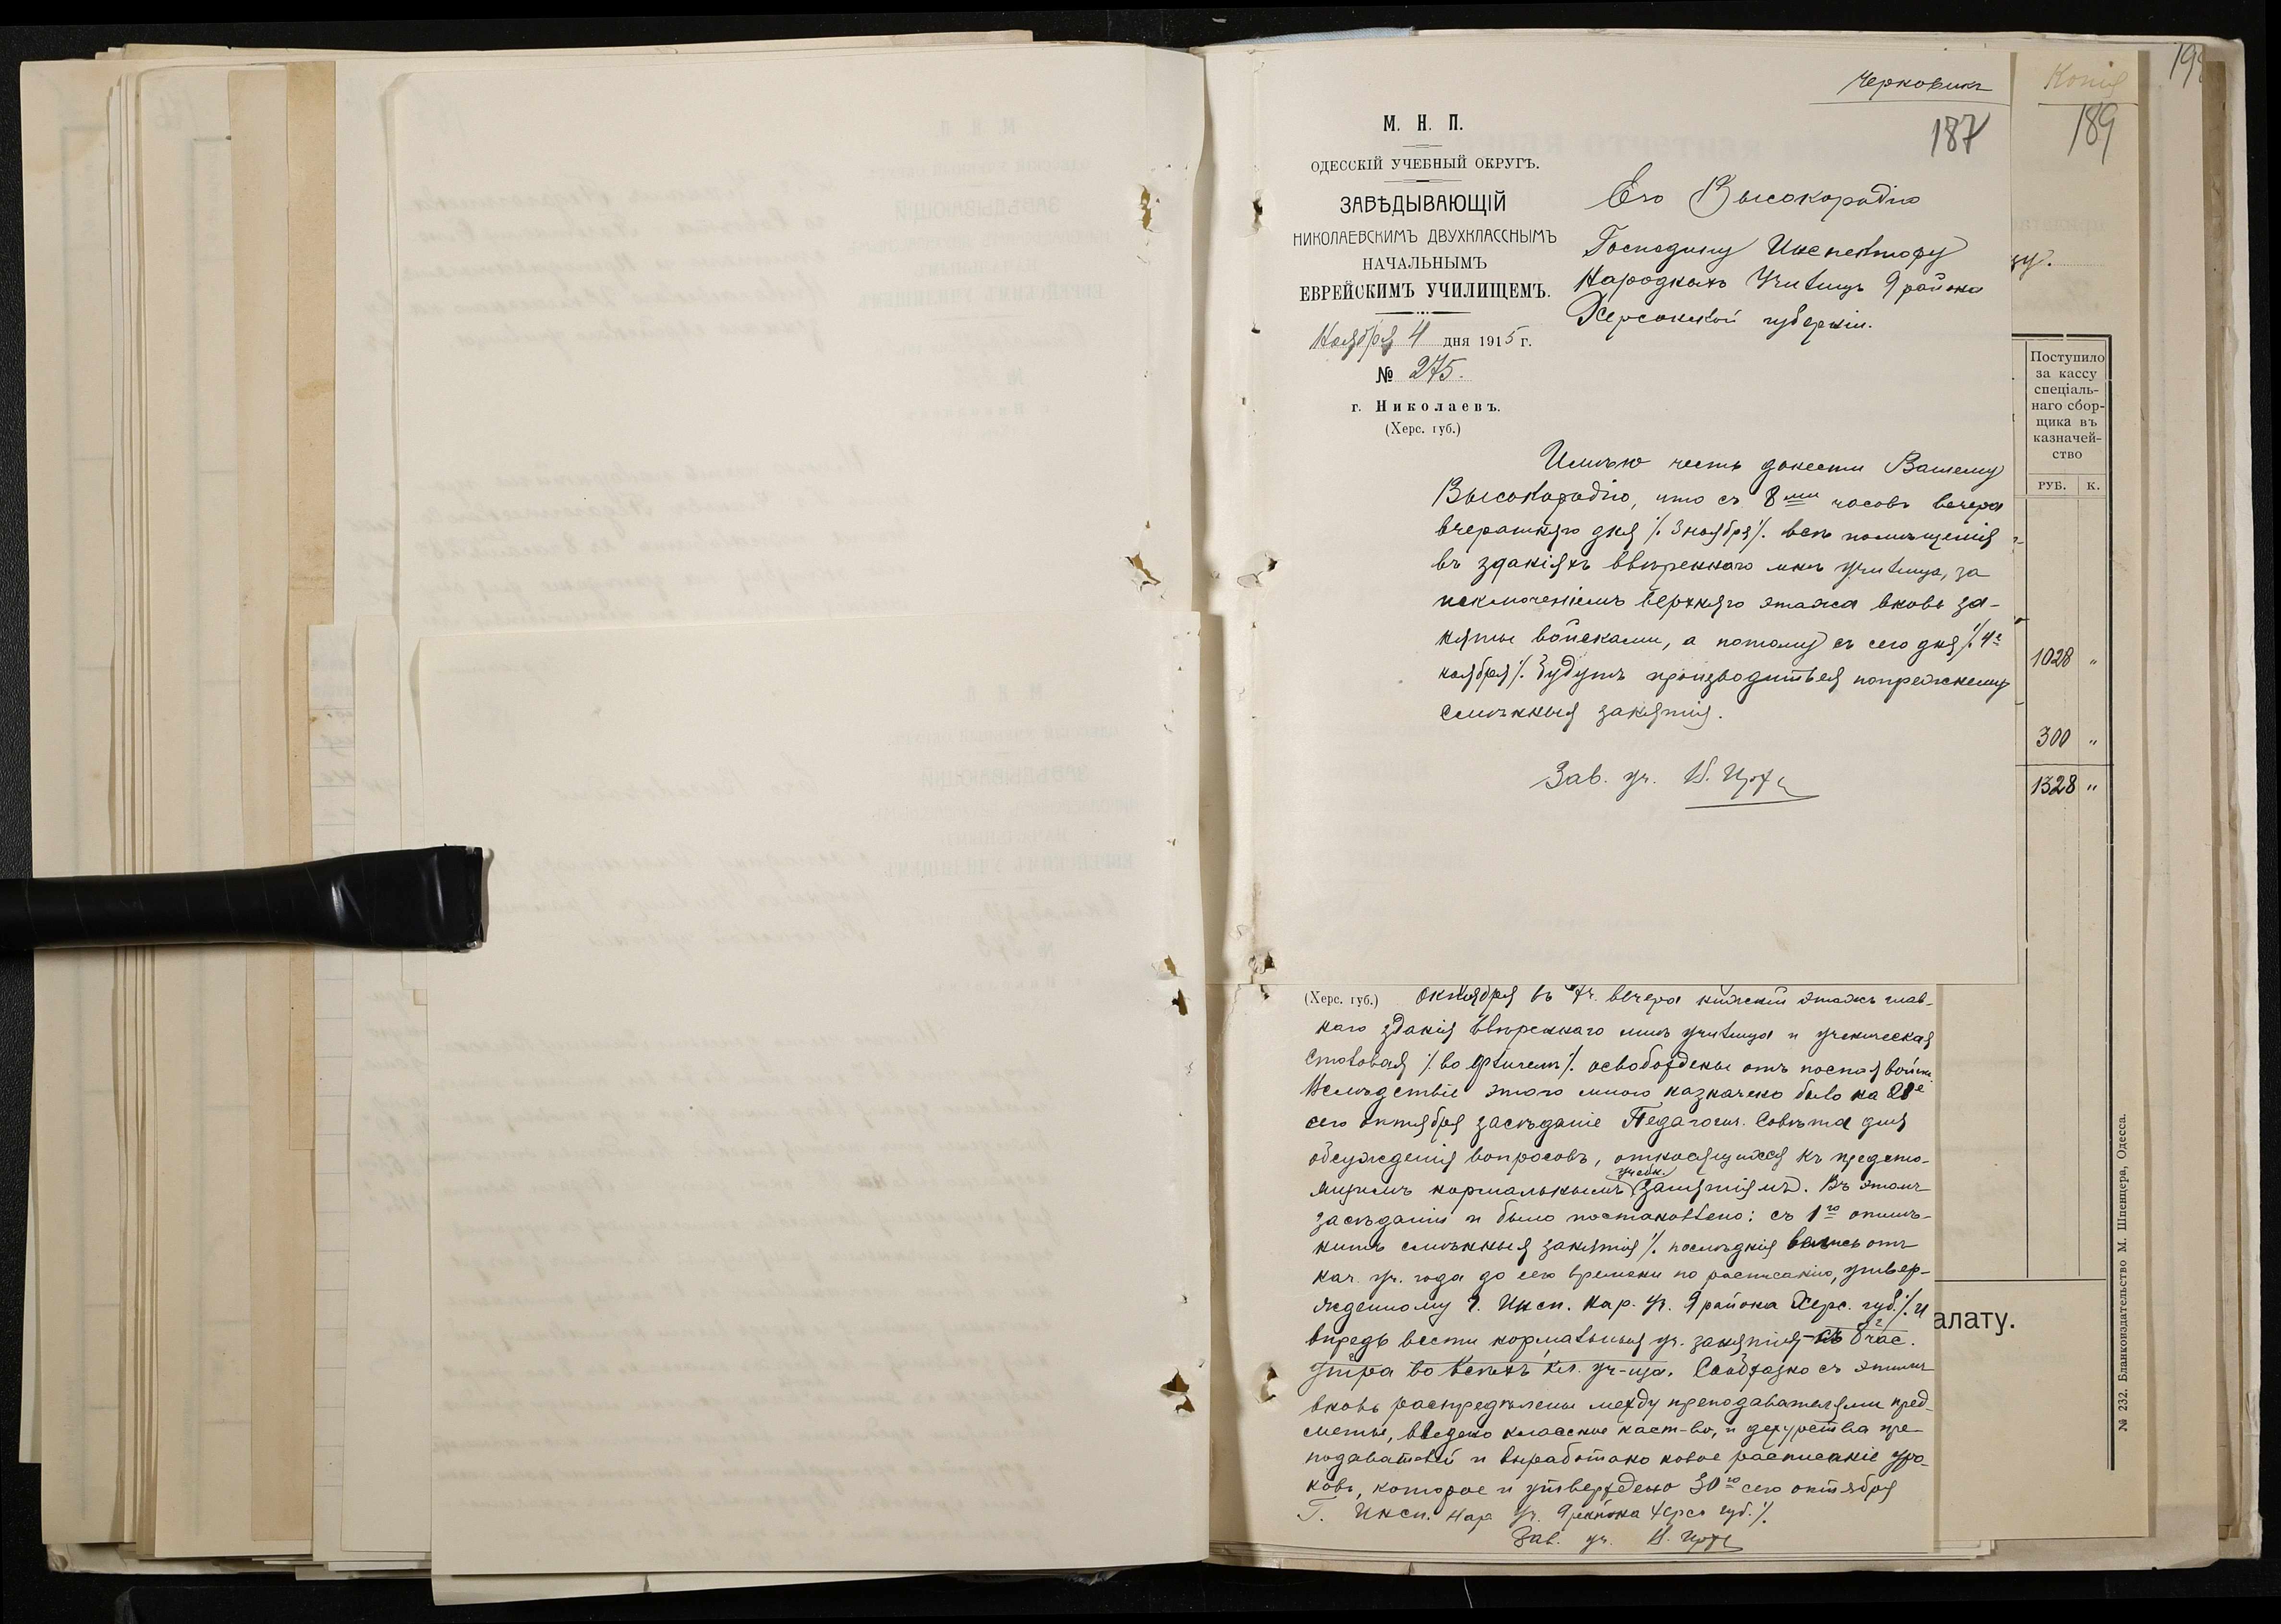 Черновикъ
187
М. Н. П.
ОДЕССКІЙ УЧЕБНЫЙ ОКРУГЪ.
ЗАВѢДЫВАЮЩІЙ
НИКОЛАЕВСКИМЪ ДВУХКЛАССНЫМЪ
НАЧАЛЬНЫМЪ
ЕВРЕЙСКИМЪ УЧИЛИЩЕМЪ.
Ноября 4 дня 1915 г.
№ 275.
г. Николаевъ.
(Херс. губ.)
Его Высокородію
Господину Инспектору
Народныхъ Училищъ 9 района
Херсонской губерніи.
Имѣю честь донести Вашему
Высокородію, что съ 8ми часовъ вечера
вчерашняго дня /. 3 ноября /. всѣ помѣщенія
въ зданіяхъ ввѣреннаго мнѣ училища, за
исключеніемъ верхняго этажа вновь за-
няты войсками, а потому съ сего дня /. 4го
ноября /. будутъ производиться попрежнему
смѣнныя занятія.
Зав. уч.
(Херс. губ.) октября въ 7 ч. вечера нижній этажъ глав-
наго зданія ввѣреннаго мнѣ училища и ученическая
столовая /. во флигелѣ /. освобождены отъ постоя войскъ
Вслѣдствіе этого мною назначено было на 28е
сего октября засѣданіе Педагогич. Совѣта для
обсужденія вопросовъ, относящихся къ предсто-
ящимъ нормальнымъ учебн. занятіямъ. Въ этомъ
засѣданіи и было постановлено: съ 1го отмѣ-
нить смѣнныя занятія /. послѣднія велись отъ
нач. уч. года до сего времени по расписанію, утвер-
жденному г. Инсп. Нар. Уч. 9 района Херс. губ. /. и
впредь вести нормальныя уч. занятія съ 8 час.
утра во всѣхъ кл. уч-ща. Сообразно съ этимъ
вновь распредѣлены между преподавателями пред-
меты, введено классное наст-во, и дежурства пре-
подавателей и выработано новое расписаніе уро-
ковъ, которое и утверждено 30го сего октября
Г. Инсп. Нар. Уч. 9 района Херс. губ. /.
Зав. уч.
Копія
189
зу.
Поступило
за кассу
спеціаль-
наго сбор-
щика въ
казначей-
ство
РУБ. К.
1028 „
300 „
1328 „
алату.
№ 232. Бланкоиздательство М. Шпенцера, Одесса.